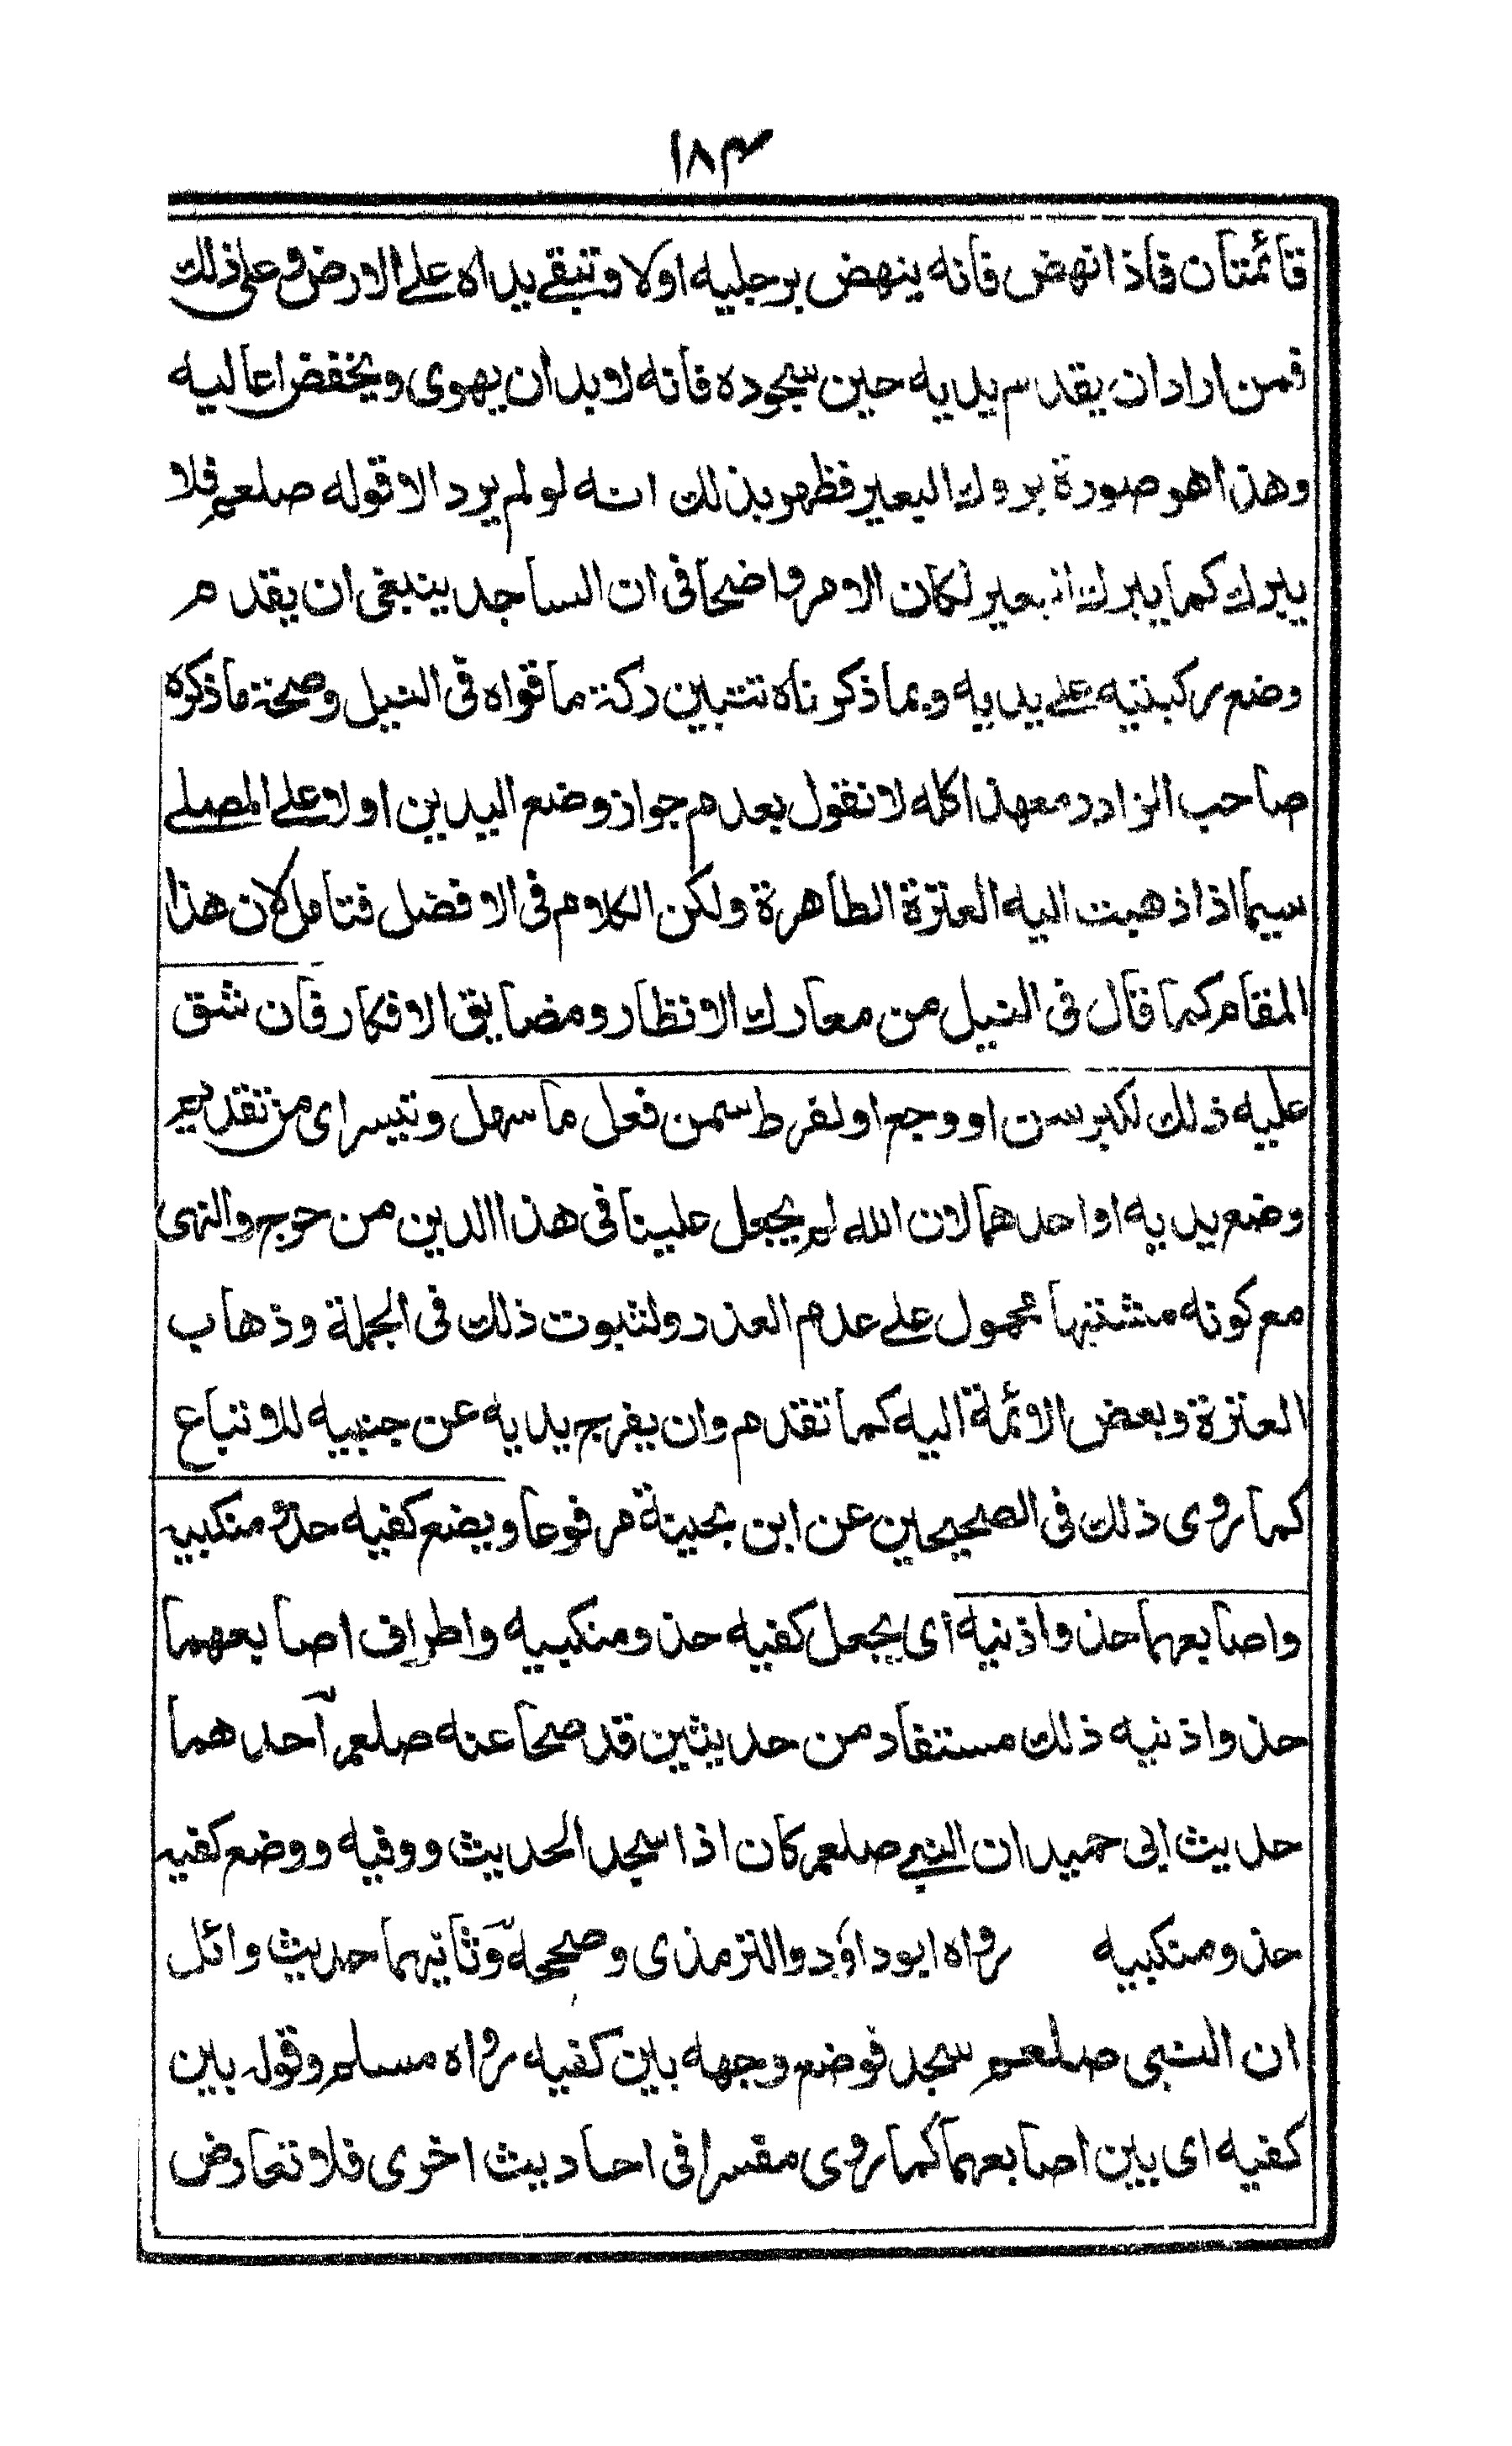 ١٨٣
قائمتان فاذا نهض فانه ينهض برجليه اولا وتبقے يداه علے الارض وعلى ذلك
فمن اراد ان يقدم يديه حين سجوده فانه لا بد ان يهوى ويخفض اعاليه
وهذا هو صورة بروك البعير فظهر بذلك انه لو لم يرد الا قوله صلعم فلا
يبرك كما يبرك البعير لكان الامر واضحا فى ان الساجد ينبغى ان يقدم
وضع ركبتيه علے يديه وبما ذكرناه تتبين ركة ما قواه فى النيل وصحة ما ذكره
صاحب الزاد ومع هذا كله لا نقول بعدم جواز وضع اليدين اولا علے المصلے
سيما اذا ذهبت اليه العترة الطاهرة ولكن الكلام فى الافضل فتامل لان هذا
المقام كما قال فى النيل من معارك الانظار ومضايق الافكار فان شق
عليه ذلك لكبر سن او وجع او لفرط سمن فعل ما سهل وتيسر اى من تقديم
وضع يديه او احدهما لان الله لم يجعل علينا فى هذا الدين من حرج والنهى
مع كونه مشتبها محمول علے عدم العذر ولثبوت ذلك فى الجملة وذهاب
العترة وبعض الائمة اليه كما تقدم وان يفرج يديه عن جنبيه للاتباع
كما روى ذلك فى الصحيحين عن ابن بحينة مرفوعا ويضع كفيه حذو منكبيه
واصابعهما حذو اذنيه اى يجعل كفيه حذو منكبيه واطراف اصابعهما
حذو اذنيه ذلك مستفاد من حديثين قد صحا عنه صلعم احدهما
حديث ابى حميد ان النبے صلعم كان اذا سجد الحديث ووفيه ووضع كفيه
حذو منكبيه رواه ابوداود والترمذى وصححه وثانيهما حديث وائل
ان النبى صلعم سجد فوضع وجهه بين كفيه رواه مسلم وقوله بين
كفيه اى بين اصابعهما كما روى مفسرا فى احاديث اخرى فلا تعارض